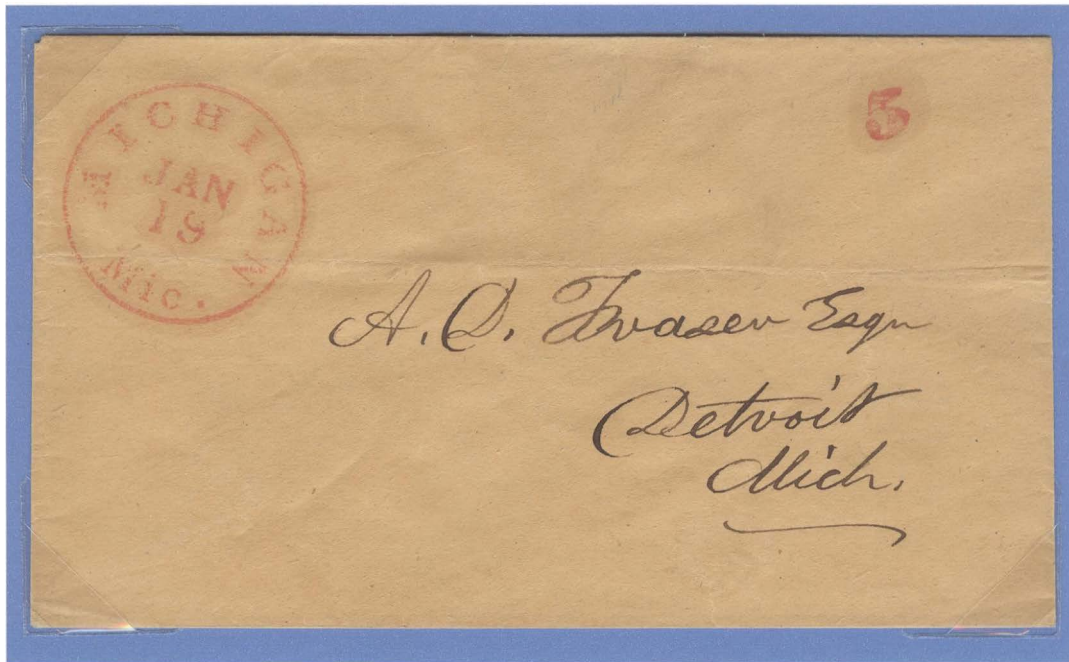 MICHIGAN
JAN
19
Mic.
5
A. D. Fraser Esqr
Detroit
Mich.